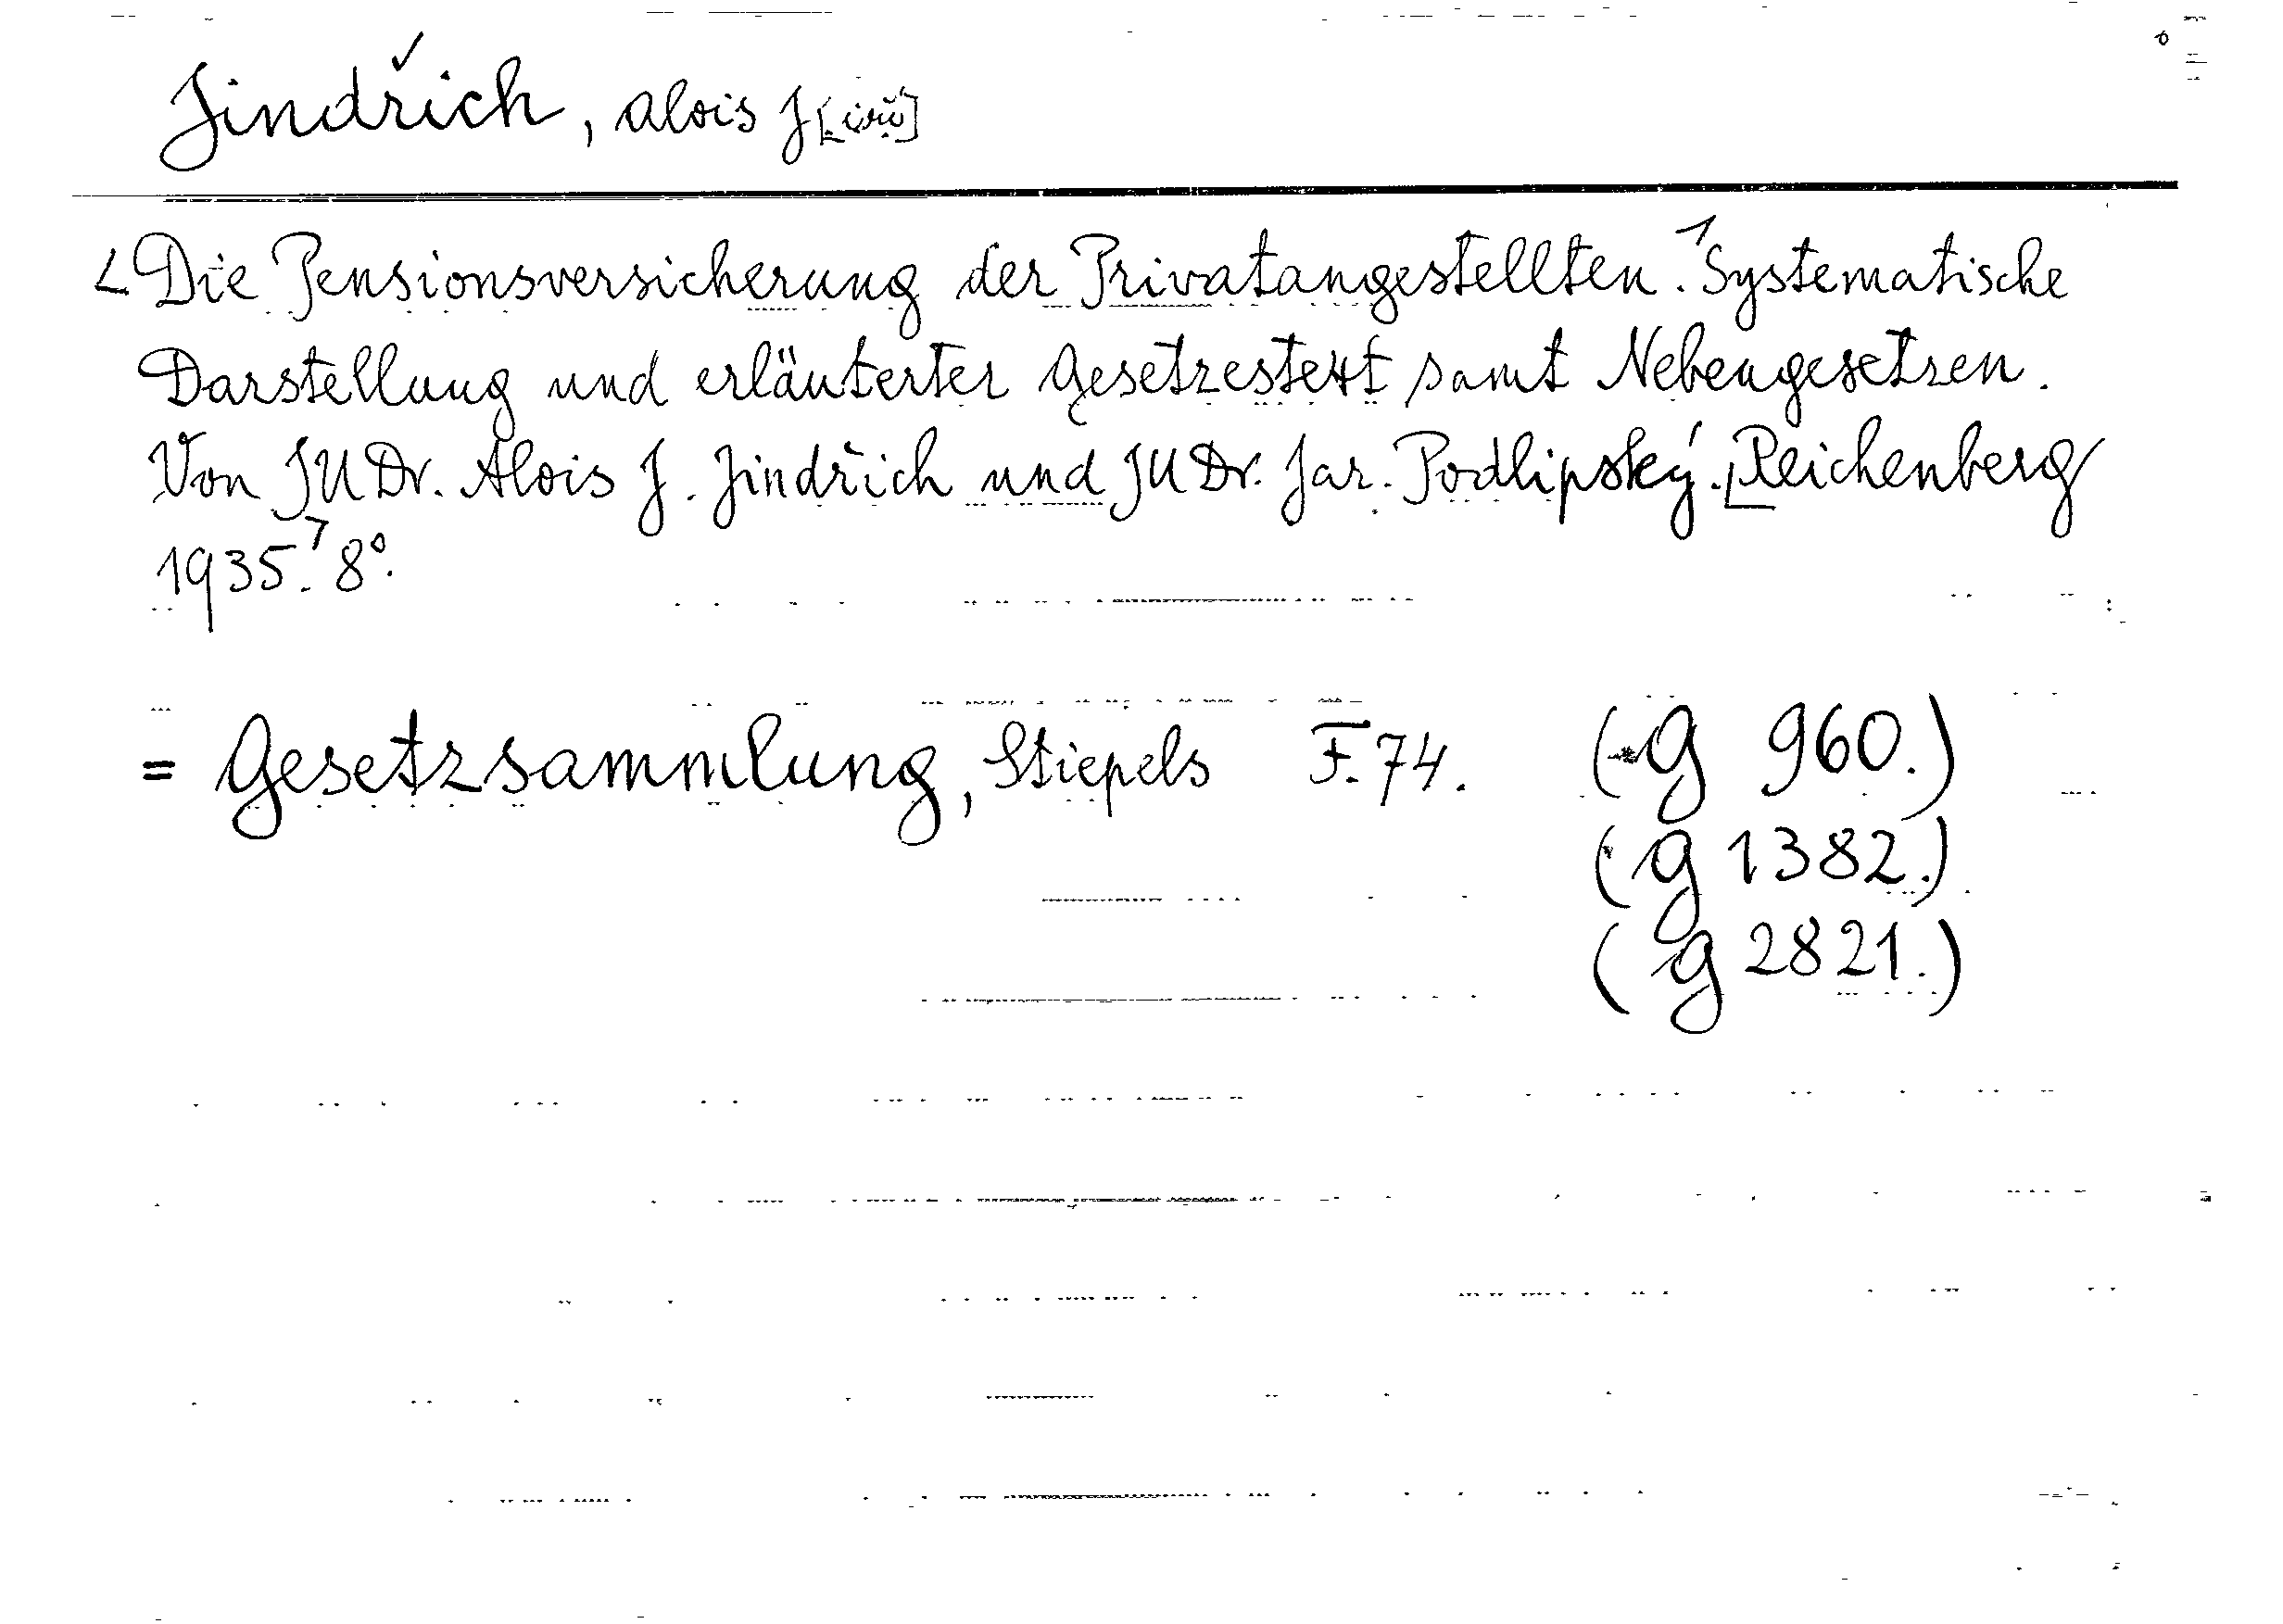 Jindřich, Alois J[iří]
Die Pensionsversicherung der Privatangestellten. Systematische
Darstellung und erläuterter Gesetzestext samt Nebengesetzen.
Von JUDr. Alois J. Jindřich und JUDr. Jar. Podlipský. [Reichenberg
1935.] 8°.
= Gesetzsammlung, Stiepels F. 74. (g 960.)
(g 1382.)
(g 2821.)